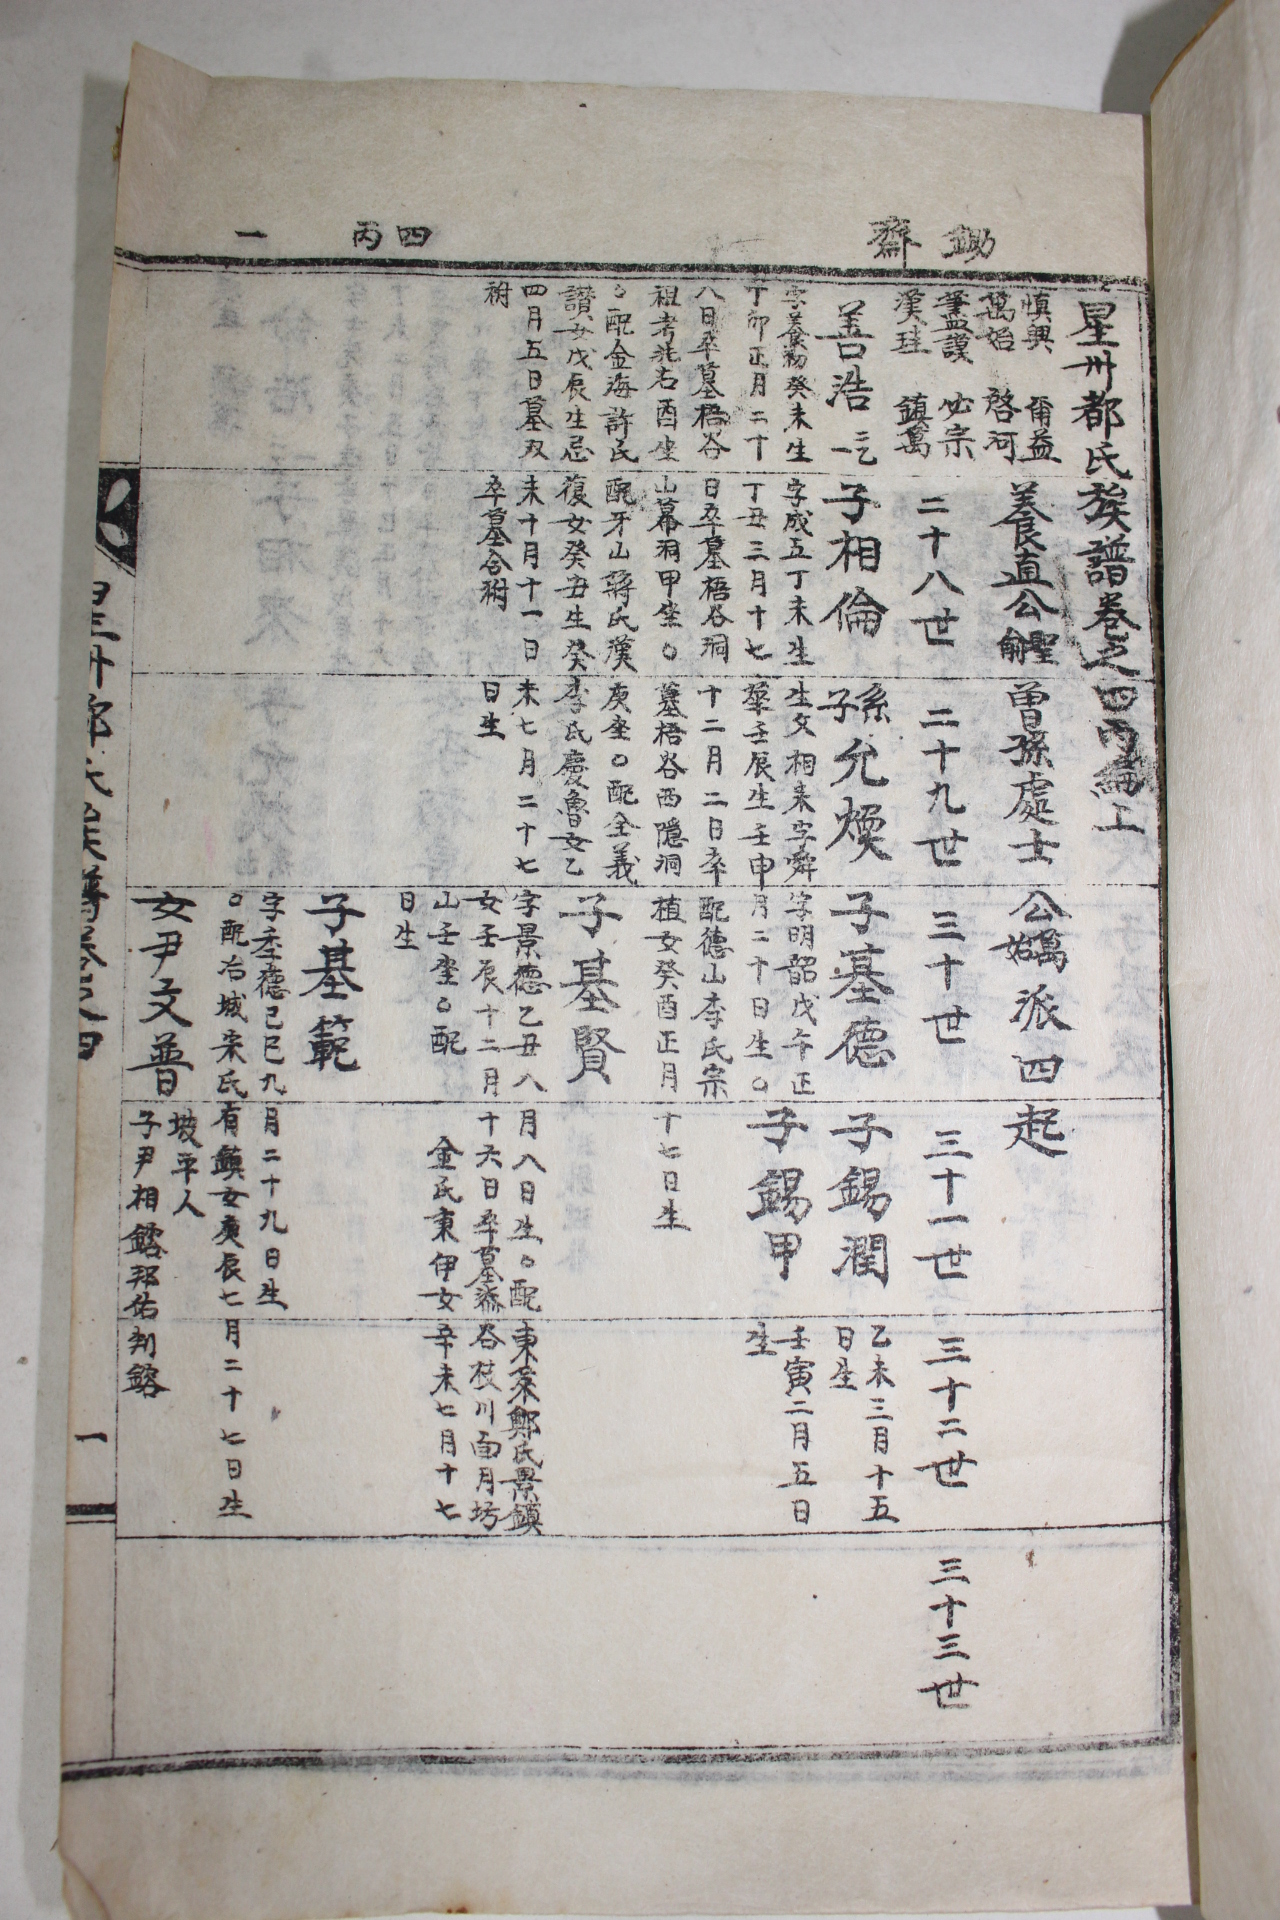 鋤齋
四丙
一
星州都氏族譜卷之四丙編上
愼興 爾益
萬始 啓河
必宗
漢珪 鎭萬
養直公聖兪曾孫處士公萬始派四起
二十八世
二十九世
三十世
三十一世
三十二世
三十三世
善浩
字養初癸未生
丁卯正月二十
八日卒墓梧谷
祖考兆右酉坐
○配金海許氏
讚女戊辰生忌
四月五日墓双
祔
子相倫
字成五丁未生
丁丑三月十七
日卒墓梧谷洞
山幕洞甲坐○
配牙山蔣氏漢
復女癸丑生癸
未十月十一日
卒墓合祔
孫子允煥
生父相来字舜
華壬辰生壬申
十二月二日卒
墓梧谷西隱洞
庚坐○配全義
李氏慶魯女乙
未七月二十七
日生
子墓德
字明韶戊午正
月二十日生○
配德山李氏宗
植女癸酉正月十七日生
子錫潤
乙未三月十五
日生
子錫甲
壬寅二月五日
生
子基賢
字景德乙丑八月八日生○配東萊鄭氏景鎭
女壬辰十二月十六日卒墓漆谷枝川面月坊
山壬坐○配金氏東伊女辛未七月十七
日生
子基範
字季德己巳九月二十九日生
○配冶城宋氏有鎭女庚辰七月二十七日生
女尹文普
坡平人
子尹相鎔邦佑判鎔
星州都氏族譜卷之四
一